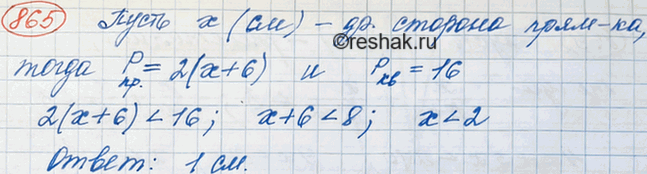 865 Пусть x (см) – др. сторона прям-ка,
©reshak.ru
тогда Pпр. = 2(x+6) и Pкв = 16
2(x+6) < 16; x+6 < 8; x < 2
Ответ: 1 см.